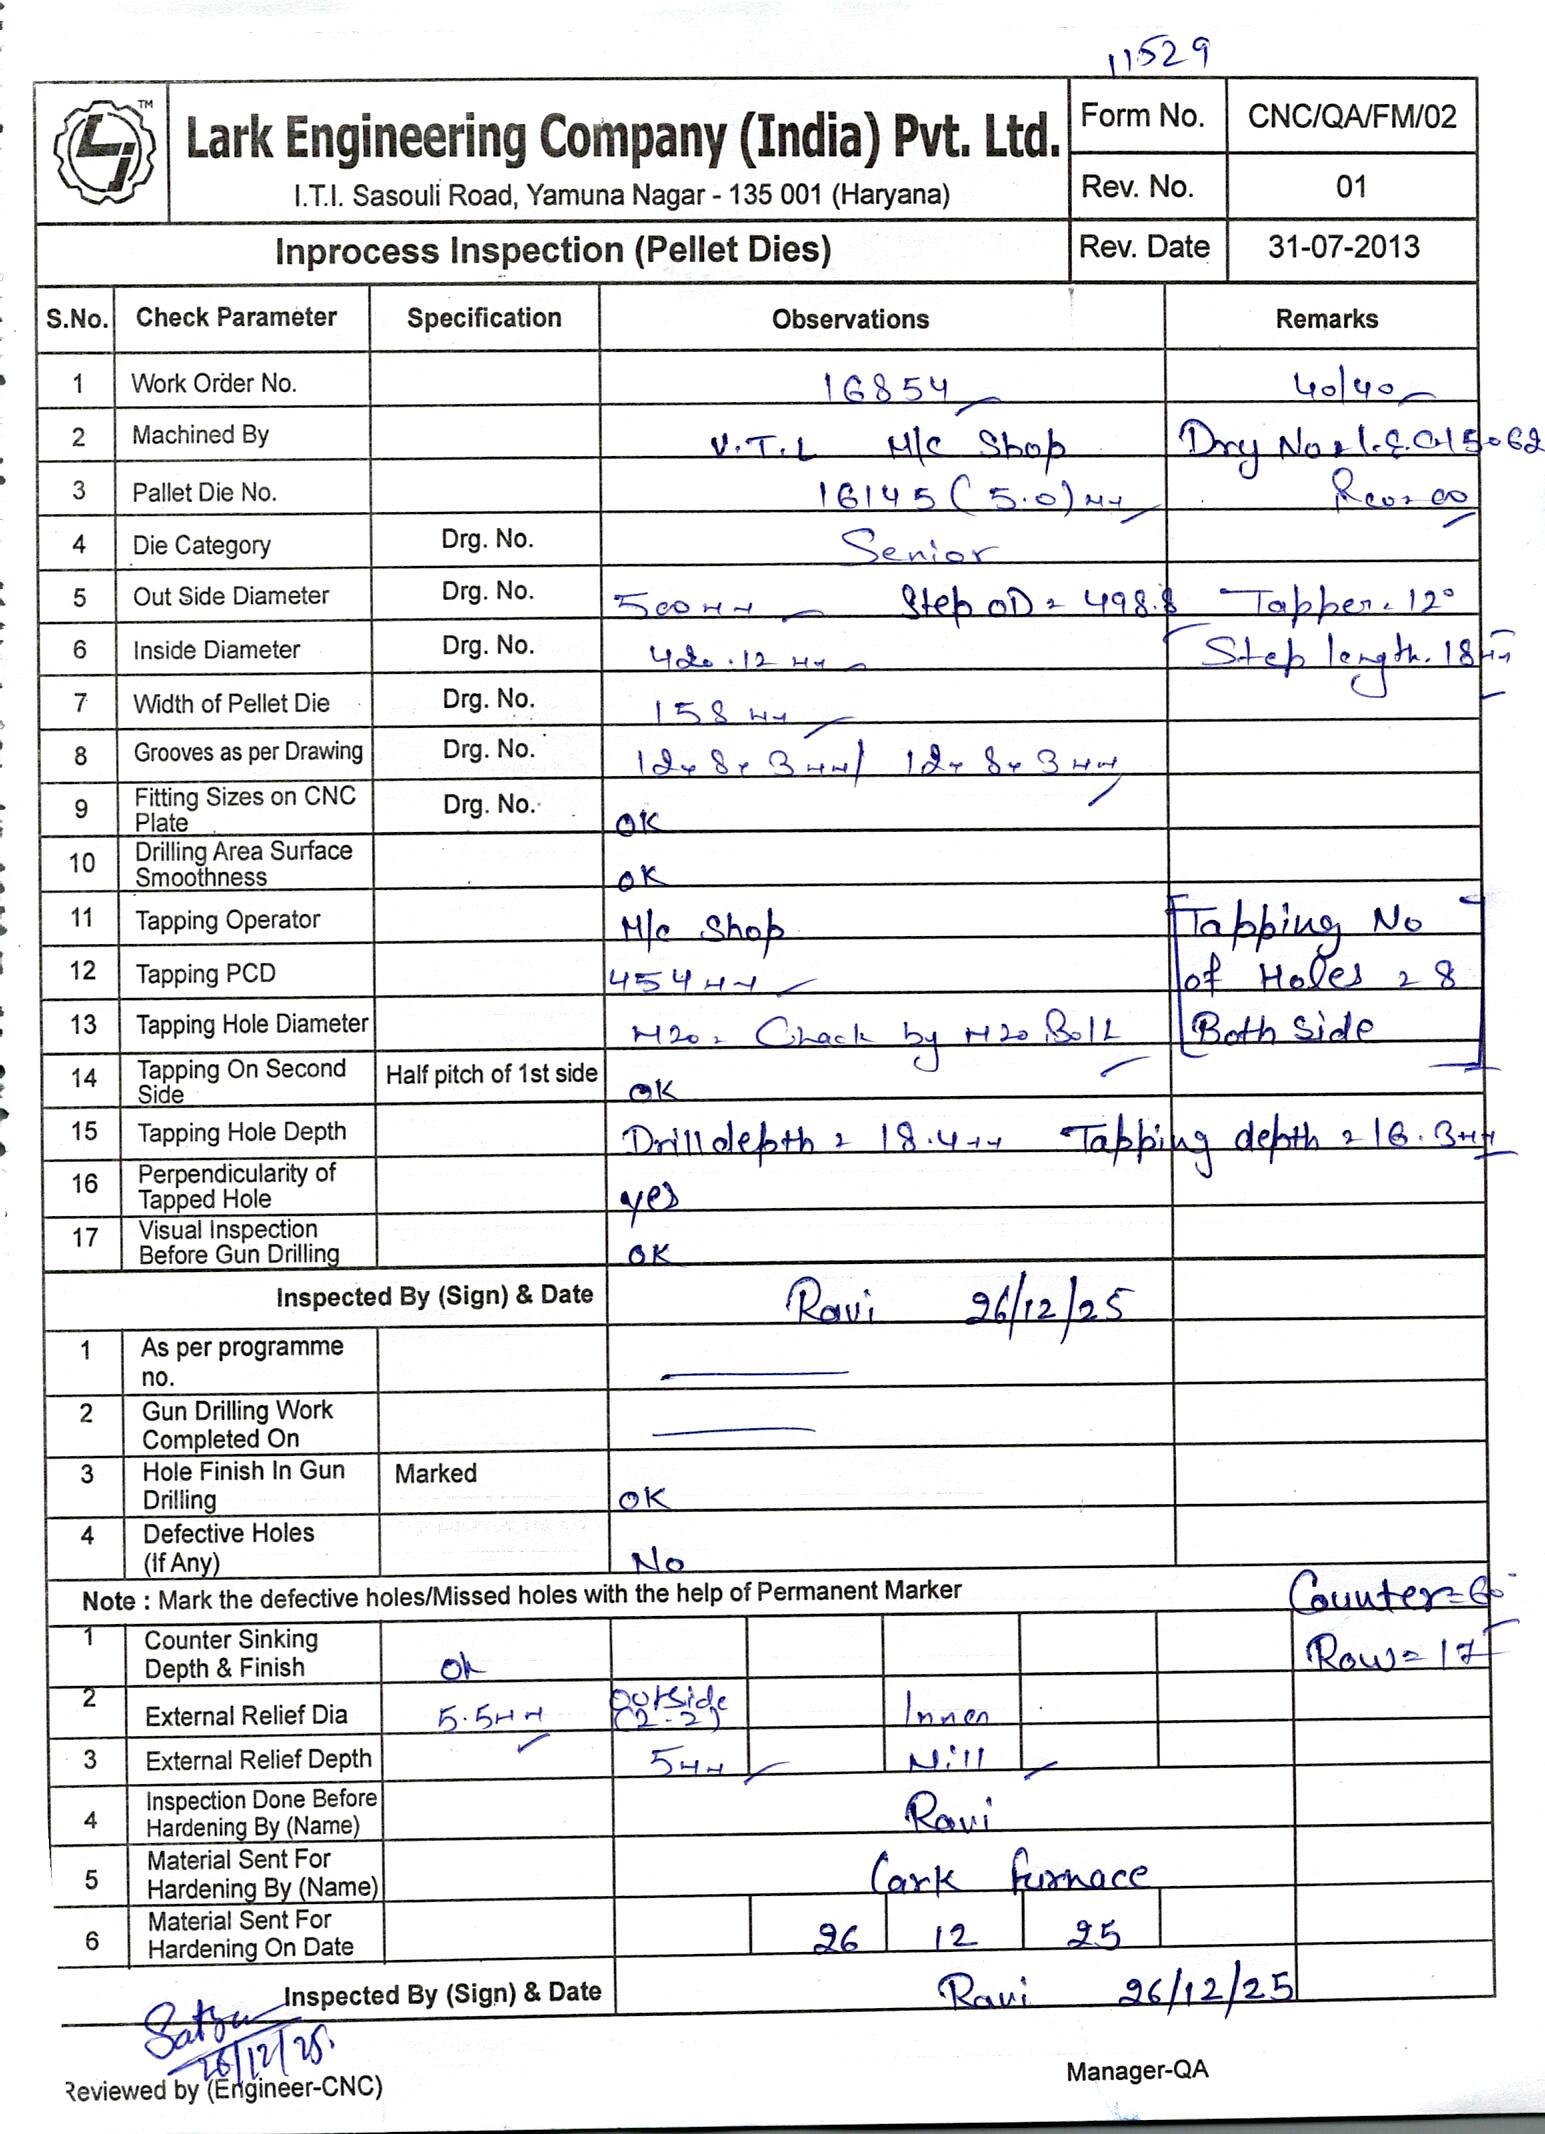 11529
LJ TM
Lark Engineering Company (India) Pvt. Ltd.
I.T.I. Sasouli Road, Yamuna Nagar - 135 001 (Haryana)
Form No. CNC/QA/FM/02
Rev. No. 01
Inprocess Inspection (Pellet Dies) Rev. Date 31-07-2013
S.No. Check Parameter Specification Observations Remarks
1 Work Order No. 16854 40/40
2 Machined By V.T.L M/c Shop Drg No
3 Pallet Die No. 16145 (5.0) mm Rev = 00
4 Die Category Drg. No. Senior
5 Out Side Diameter Drg. No. 500mm Step OD = 498.8 Tapper = 12°
6 Inside Diameter Drg. No. 420.12 mm Step length. 18mm
7 Width of Pellet Die Drg. No. 158 mm
8 Grooves as per Drawing Drg. No. 12x8x3mm/ 12x8x3mm
9 Fitting Sizes on CNC Plate Drg. No. OK
10 Drilling Area Surface Smoothness OK
11 Tapping Operator M/c Shop Tapping No
12 Tapping PCD 454mm of Holes = 8
13 Tapping Hole Diameter M20 = Chack by M20 Bolt Both Side
14 Tapping On Second Side Half pitch of 1st side OK
15 Tapping Hole Depth Drill depth = 18.4mm Tapping depth = 16.3mm
16 Perpendicularity of Tapped Hole yes
17 Visual Inspection Before Gun Drilling OK
Inspected By (Sign) & Date Ravi 26/12/25
1 As per programme no.
2 Gun Drilling Work Completed On
3 Hole Finish In Gun Drilling Marked OK
4 Defective Holes (If Any) No
Note : Mark the defective holes/Missed holes with the help of Permanent Marker Counter = 60°
1 Counter Sinking Depth & Finish Ok Row = 17
2 External Relief Dia 5.5mm Outside (2-2) Inner
3 External Relief Depth 5mm Nill
4 Inspection Done Before Hardening By (Name) Ravi
5 Material Sent For Hardening By (Name) Lark furnace
6 Material Sent For Hardening On Date 26 12 25
Inspected By (Sign) & Date Ravi 26/12/25
26/12/25.
Reviewed by (Engineer-CNC) Manager-QA